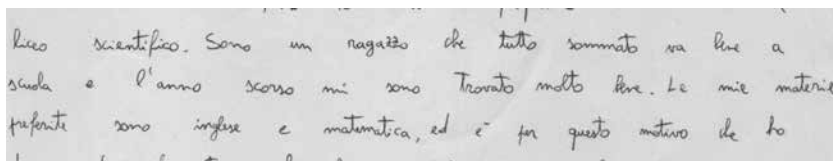 liceo scientifico. Sono un ragazzo che tutto sommato va bene a
scuola e l'anno scorso mi sono trovato molto bene. Le mie materie
preferite sono inglese e matematica, ed è per questo motivo che ho